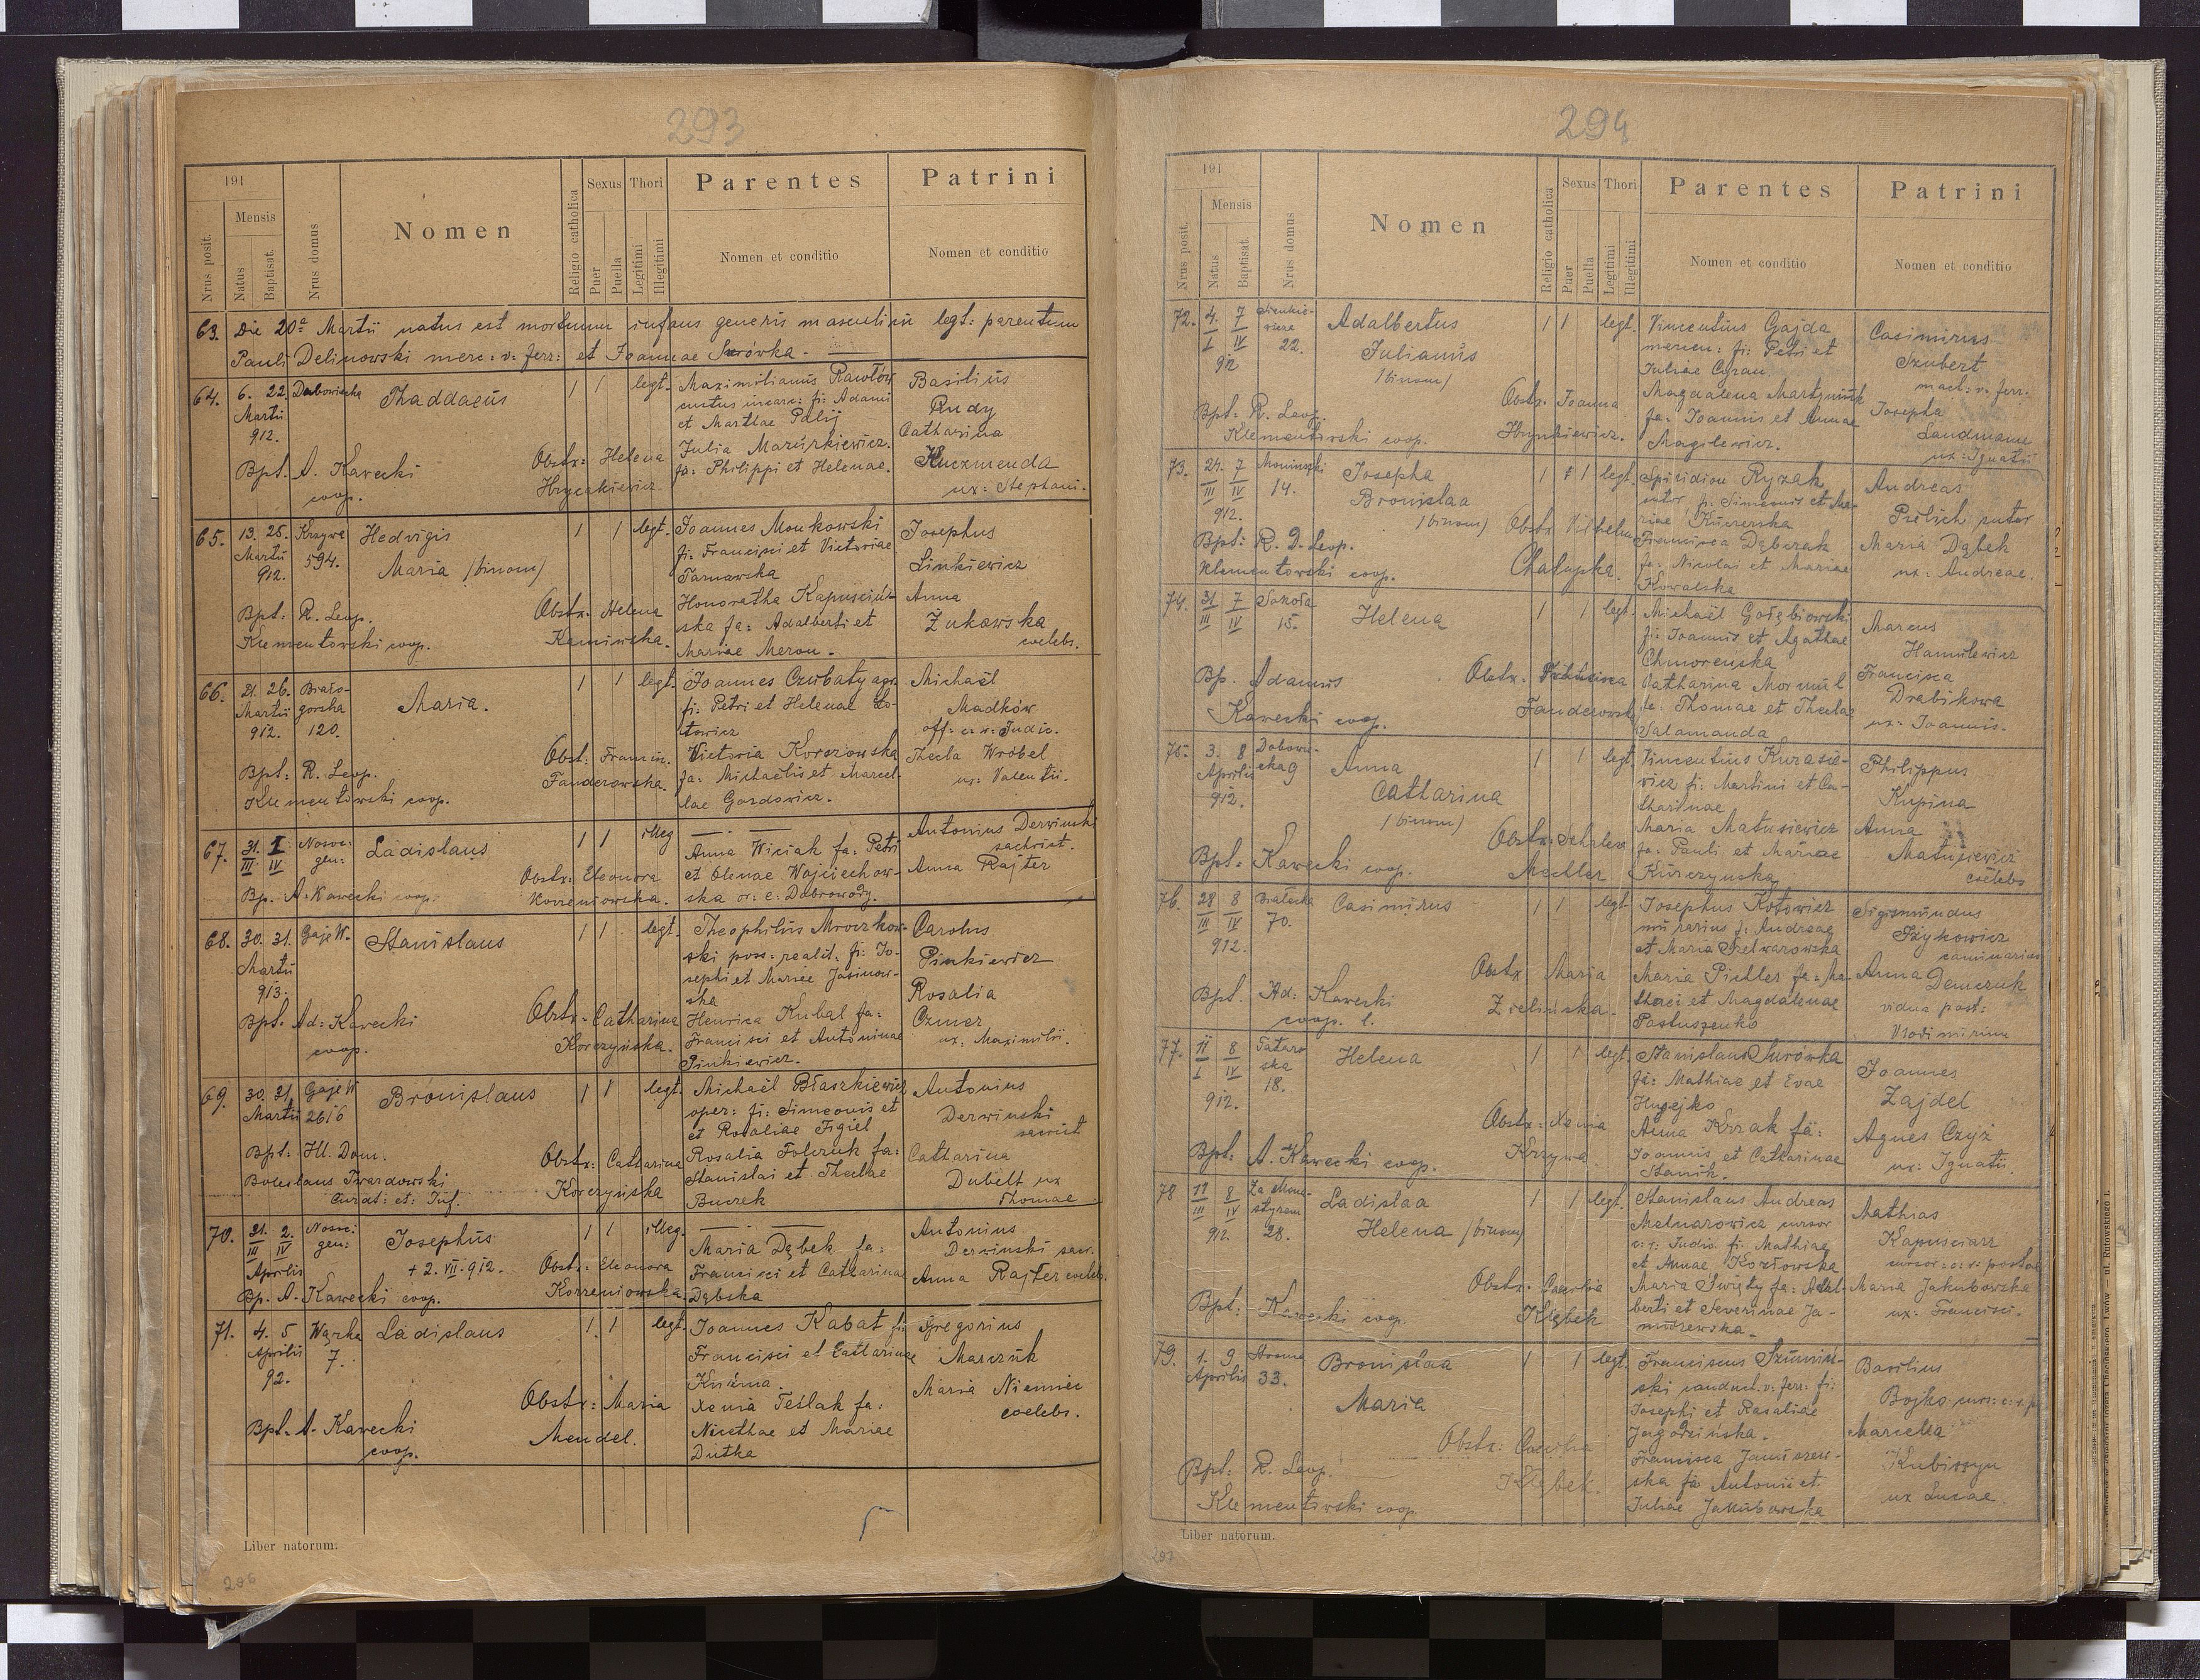 293
191
Nrus posit.
Mensis
Natus
Baptisat.
Nrus domus
Nomen
Religio catholica
Sexus
Puer
Puella
Thori
Legitimi
Illegitimi
Parentes
Nomen et conditio
Patrini
Nomen et conditio
63. Die 20ª Martii natus est mortuum infans generis masculini legt: parentum
Pauli Delinowski merc: v: ferr: et Joannae Surówka.
64. 6. 22. Thaddaeus 1 1 legt.
Martii
912.
Maximilianus
fi: Adami
et Marthae Palij
Julia Mazurkiewicz
fa: Philippi et Helenae.
Basilius
Rudy
Catharina
Kuczmenda
ux: Stephani.
Bpt. A. Kawecki
coop.
Obstx: Helena
Hryczkiewicz
65. 13. 25. Krzywa Hedvigis 1 1 legt.
Martii 594. Maria (binom)
912.
Joannes Monkowski
fi: Francisci et Victoriae
Tarnawska
Honoratha Kapuściń-
ska fa: Adalberti et
Mariae Meron.
Josephus
Linkiewicz
Anna
Żukowska
coelebs.
Bpt: R. Leop.
Klementowski coop.
Obstx: Helena
Kaminska.
66. 21. 26. Maria. 1 1 legt.
Martii
912. 120.
Joannes Czubaty agr.
fi: Petri et Helenae Ło-
towicz
Victoria Korszowska
fa: Michaelis et Marcel-
lae Gozdowicz.
Michaël
Madków
off: c. r: Judic.
Thecla Wróbel
ux: Valentii.
Bpt: R. Leop.
Klementowski coop.
Obst: Francisc.
Fanderowska.
67. 31. I. Nosoc: Ladislaus 1 1 illeg
III. IV gen:
Anna Wiciak fa: Petri
et Olenae Wojciechow-
ska or: e: Dobrowody.
Antonius Derwinski
sacrist.
Anna Rajter
Bp. A. Kawecki coop.
Obstx: Eleonora
Korzeniowska.
68. 30. 31. Gaje W. Stanislaus 1 1 legt.
Martii
913.
Theophilus Mroczkow-
ski poss: realit: fi: Jo-
sephi et Mariae Jasinow-
ska
Henrica Kubal fa:
Francisci et Antoninae
Pinkiewicz.
Carolus
Pinkiewicz
Rosalia
Czmer
ux: Maximilii.
Bpt. Ad: Kawecki
coop.
Obstx: Catharina
Korczyńska.
69. 30. 31. Gaje W Bronislaus 1 1 legt.
Martii 2616
Michaël Błaszkiewicz
oper: fi: Simeonis et
et Rosaliae Figiel
Rosalia Folczuk fa:
Stanislai et Theclae
Buczek
Antonius
Derwinski
Catharina
Dubelt ux
Thomae
Bpt: Ill. Dom.
Boleslaus Twardowski
Curat: et: Inf.
Obstx: Catharina
Korczyńska
70. 31. 2. Nosoc: Josephus 1 1 illeg.
III IV gen: + 2. VII. 912.
Aprilis
Maria Dąbek fa:
Francisci et Catharinae
Dąbska
Antonius
Derwinski sacr.
Anna Rajter coeleb.
Bp. A. Kawecki coop.
Obstx: Eleonora
Korzeniowska.
71. 4. 5 Warka Ladislaus 1 1 legt.
Aprilis 7.
92.
Joannes Kabat fi
Francisci et Catharinae
Kuźma
Xenia Teślak fa:
Nicethae et Mariae
Dutka
Gregorius
Marczuk
Maria Niemiec
coelebs.
Bpt. A. Kawecki
coop.
Obstx: Maria
Mendel.
Liber natorum.
206
294
191
Nrus posit.
Mensis
Natus
Baptisat.
Nrus domus
Nomen
Religio catholica
Sexus
Puer
Puella
Thori
Legitimi
Illegitimi
Parentes
Nomen et conditio
Patrini
Nomen et conditio
72. 4. 7 Adalbertus 1 1 legt.
I IV 22. Julianus
912 (binom)
Vincentius Gajda
mercen: fi: Petri et
Juliae Cyran.
Magdalena Martyniuk
fa: Joannis et Annae
Magilewicz.
Casimirus
Szubert
mach: v. ferr.
Josepha
Landmann
ux: Ignatii
Bpt: R. Leop.
Klementowski coop.
Obstx. Joanna
Hrynkiewicz.
73. 24. 7 Moniuszki Josepha 1 1 legt.
III IV 14. Bronislaa
912. (binom)
Spiridion Ryzak
sutor, fi: Simeonis et Ma-
riae Kuczerska
Francisca Dąbczak
fa: Nicolai et Mariae
Kowalska
Andreas
Pselich sutor
Maria Dąbek
ux: Andreae.
Bpt: R. D. Leop.
Klementowski coop.
Obstx
Chałupka.
74. 31 7 Sokoła Helena 1 1 legt.
III IV 15.
Michaël Gołębiowski
fi: Joannis et Agathae
Chmoreńska
Catharina Mormul
fa: Thomae et Theclae
Salamanda
Marcus
Hamulewicz
Francisca
Drabikowa
ux: Joannis.
Bp. Adamus
Kawecki coop.
Obstx: Francisca
Fanderowsk
75. 3. 8 Anna 1 1 legt
Aprilis 9 Catharina
912. (binom)
Vincentius Kurasie-
wicz fi: Martini et Ca-
tharinae
Maria Matusiewicz
fa: Pauli et Mariae
Kurczynska
Philippus
Kupina
Anna
Matusiewicz
coelebs
Bpt: Kawecki coop.
Obstx:
Medler
76. 28 8 Casimirus 1 1 legt
III IV 70.
912.
Josephus Kotowicz
murarius f: Andreae
et Maria Szelwarowska
Maria Piedler fa:
et Magdalenae
Pastuszenko
Sigismundus
Szykowicz
caminarius
Anna Demczuk
vidua post:
Vlodimirum
Bpt. Ad: Kawecki
coop. l.
Obstx Maria
Zielińska.
77. 11 8 Tatar- Helena 1 1 legt
I IV ska
912. 18.
Stanislaus Surówka
fi: Mathiae et Evae
Anna Kozak fa:
Joannis et Catharinae
Stanik.
Joannes
Zajdel
Agnes Czyż
ux: Ignatii.
Bpt: A. Kawecki coop.
Obstx: Xenia
Krzywa
78 11 8 Za Mona- Ladislaa 1 1 legt.
III IV styrem Helena (binom)
912. 28.
Stanislaus Andreas
Melnarowicz cursor
c: r: Judic. fi: Mathiae
et Annae Kozłowska
Maria Święty fa: Adal-
berti et Severinae Ja-
nuszewska.
Mathias
Kapusciarz
cursor: c: r: postal
Maria Jakubowska
ux: Francisci.
Bpt: Kawecki coop.
Obstx:
Kłębek
79. 1. 9 Bronisłaa 1 1 legt.
Aprilis 33. Maria
Franciscus Szumiń-
ski conduct. v: ferr: fi:
Josephi et Rosaliae
Jagodzińska.
Francisca Janiszew-
ska fa Antonii et
Juliae Jakubowska
Basilius
Bojko
Marcella
Kubiszyn
ux Lucae
Bpt: R. Leop.
Klementowski coop.
Obstx: Caecilia
Kłębek.
Liber natorum.
207